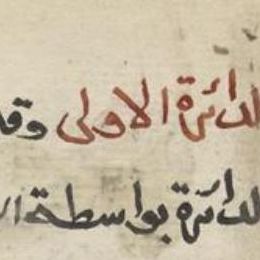 لدائرة الاولى وقد
لدائرة بواسطة ال